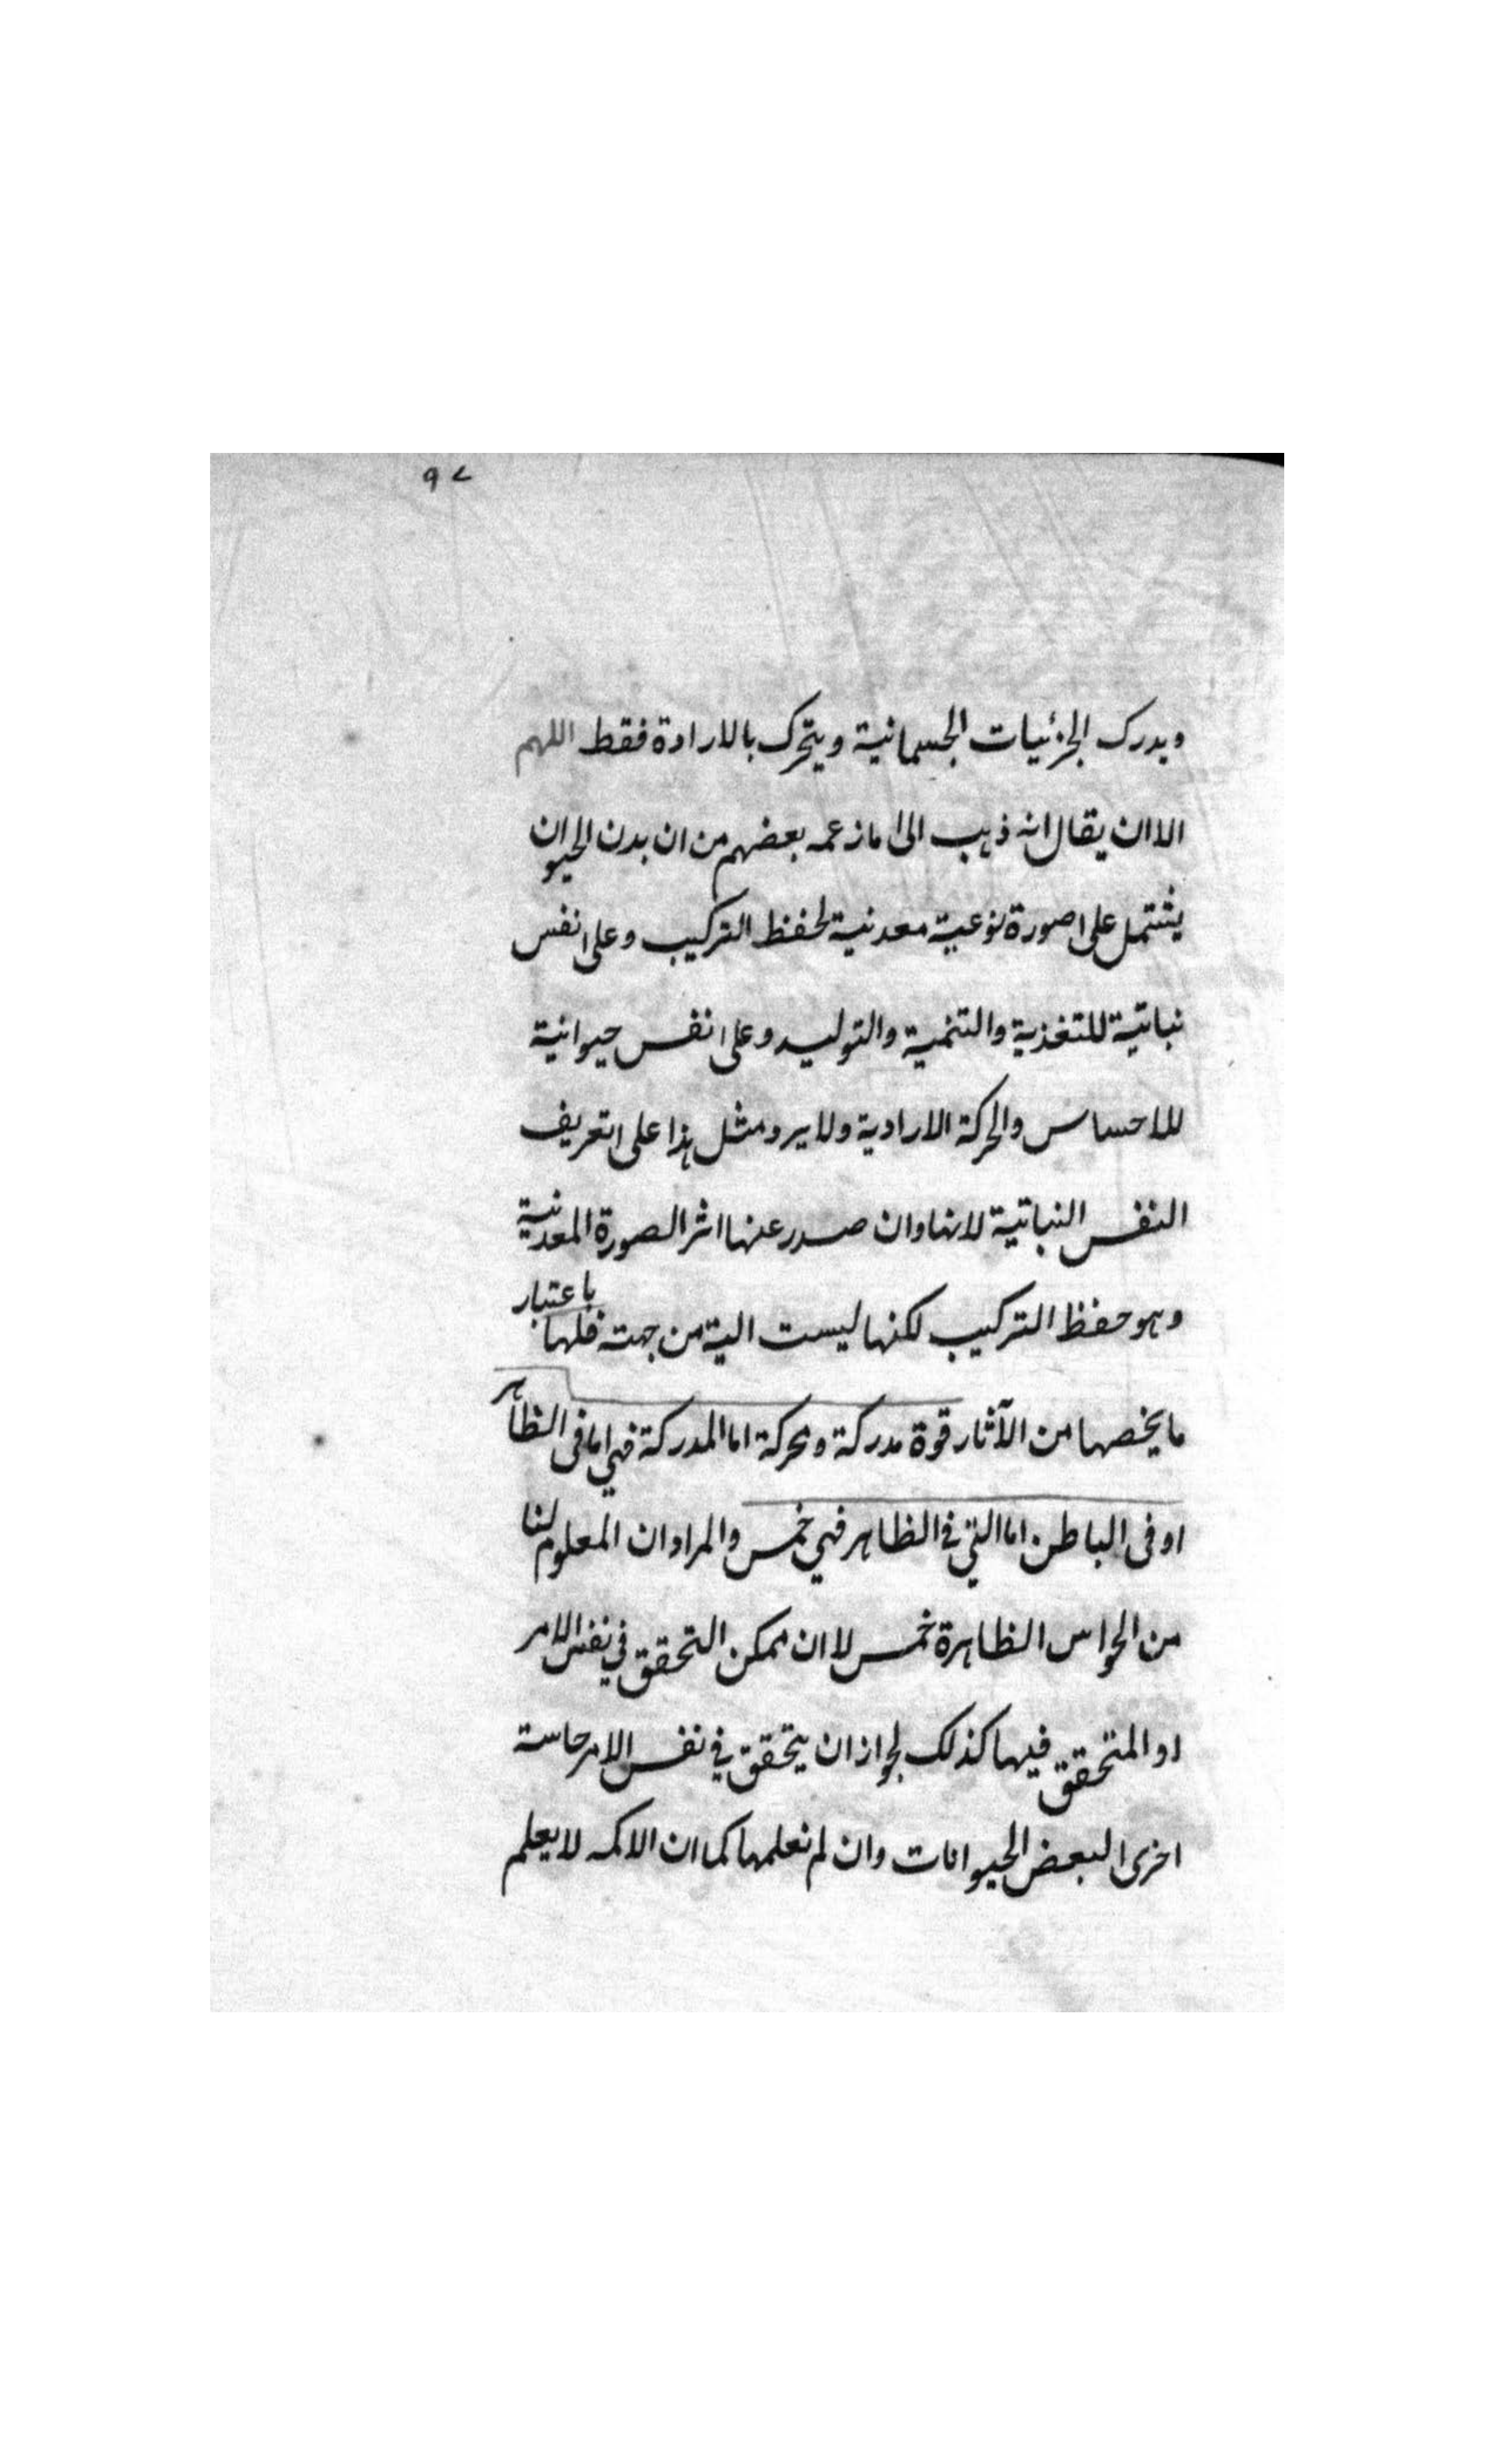 ٩٧
ويدرك الجزئيات الجسمانية ويتحرك بالارادة فقط اللهم
الا ان يقال انه ذهب الى ما زعمه بعضهم من ان بدن الحيوان
يشتمل على صورة نوعية معدنية لحفظ التركيب وعلى نفس
نباتية للتغذية والتنمية والتوليد وعلى نفس حيوانية
للاحساس والحركة الارادية ولا يرد مثل هذا على تعريف
النفس النباتية لانها وان صدر عنها اثر الصورة المعدنية
وهو حفظ التركيب لكنها ليست الية من جهته فلها باعتبار
ما يخصها من الآثار قوة مدركة ومحركة اما المدركة فهي اما في الظاهر
او في الباطن اما التي في الظاهر فهي خمس والمراد ان المعلوم لنا
من الحواس الظاهرة خمس لا ان ممكن التحقق في نفس الامر
او المتحقق فيها كذلك لجواز ان يتحقق في نفس الامر حاسة
اخرى لبعض الحيوانات وان لم نعلمها كما ان الاكمه لا يعلم